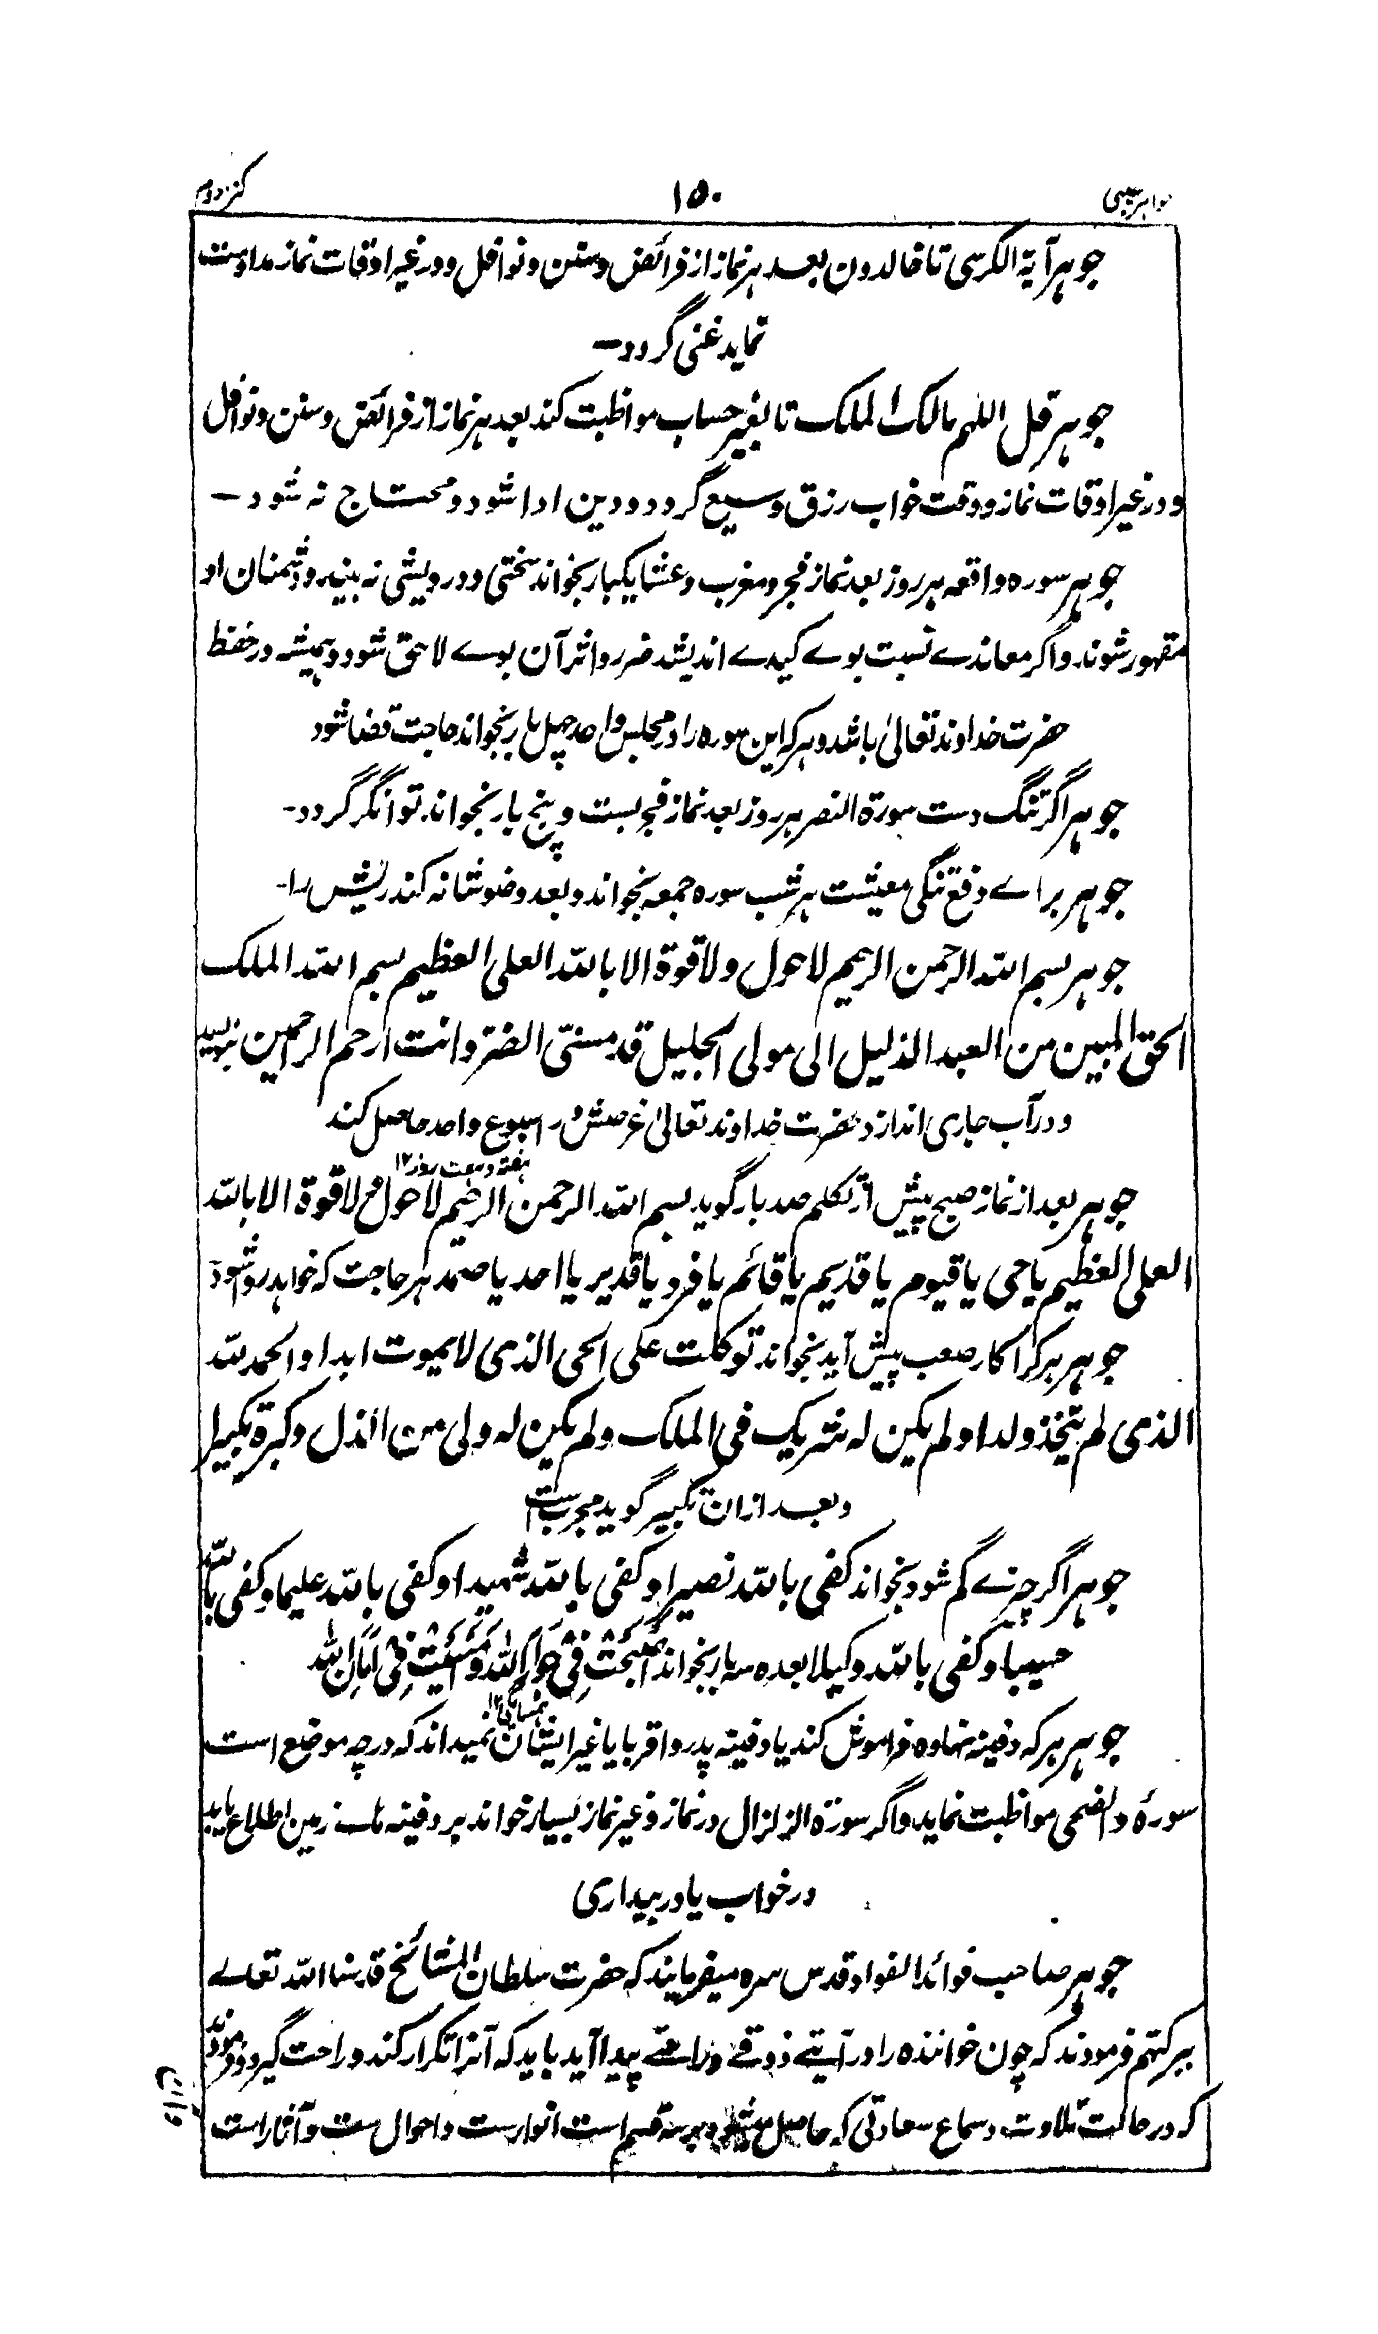 کنز دوم ۱۵۰ جواہر غیبی
جوہر آیة الکرسی تا خالدون بعد ہر نماز از فرائض و سنن و نوافل و در غیر اوقات نماز مداومت
نماید غنی گردد—
جوہر قل اللہم مالک الملک تا بغیر حساب مواظبت کند بعد ہر نماز از فرائض و سنن و نوافل
و در غیر اوقات نماز و وقت خواب رزق وسیع گردد و دین ادا شود و محتاج نہ شود—
جوہر سورہ واقعہ ہر روز بعد نماز فجر و مغرب و عشا یکبار بخواند سختی و درویشی نہ بیند و دشمنان او
مقہور شوند و اگر معاندے نسبت بوے کیدے اندیشد ضرر و اثر آن بوے لاحق شود و ہمیشہ در حفظ
حضرت خداوند تعالیٰ باشد و ہر کہ این سورہ را در مجلس واحد چہل بار بخواند حاجت قضا شود
جوہر اگر تنگ دست سورة النصر ہر روز بعد نماز فجر بست و پنج بار بخواند توانگر گردد-
جوہر براے دفع تنگی معیشت ہر شب سورہ جمعہ بخواند و بعد وضو شانہ کند ریش را-
جوہر بسم اللہ الرحمن الرحیم لاحول ولا قوة الا باللہ العلی العظیم بسم اللہ الملک
الحق المبین من العبد الذلیل الی مولی الجلیل قد مسنی الضر و انت ارحم الراحمین بنویسد
و در آب جاری اندازد حضرت خداوند تعالیٰ غرضش در اسبوع واحد حاصل کند
ہفتہ و ہفت روز ۱۲
جوہر بعد از نماز صبح پیش از تکلم صد بار گوید بسم اللہ الرحمن الرحیم لاحول ولا قوة الا باللہ
العلی العظیم یا حی یا قیوم یا قدیم یا قائم یا فرد یا قدیر یا احد یا صمد ہر حاجت کہ خواہد روا شود
جوہر ہر کرا کار صعب پیش آید بخواند توکلت علی الحی الذی لا یموت ابدا والحمد للہ
الذی لم یتخذ ولدا ولم یکن له شریک فی الملک ولم یکن له ولی من الذل وکبرہ تکبیرا
و بعد ازان تکبیر گوید مجرب ست
جوہر اگر چیزے گم شود بخواند کفی باللہ نصیرا وکفی باللہ شہیدا وکفی باللہ علیما وکفی باللہ
حسیبا وکفی باللہ وکیلا بعدہ سہ بار بخواند اَصْبَحْتُ فِی جِوَارِ اللہِ وَاَمْسَیْتُ فِی اَمَانِ اللہِ
ہمسایگی ۱۲
جوہر ہر کہ دفینہ نہادہ فراموش کند یا دفینہ پدر و اقربا یا غیر ایشان نمیداند کہ در چہ موضع است
سورۂ والضحی مواظبت نماید و اگر سورۃ الزلزال در نماز و غیر نماز بسیار خواند بر دفینہ ہاے زمین اطلاع یابد
در خواب یا در بیداری
جوہر صاحب فوائد الفواد قدس سرہ میفرمایند کہ حضرت سلطان المشائخ قدسنا اللہ تعالے
ببرکتہم فرمودند کہ چون خوانندہ را در آیتے ذوقے و راحتے پیدا آید باید کہ آنرا تکرار کند و راحت گیرد و فرمودند
کہ در حالت تلاوت و سماع سعادتی کہ حاصل میشود بر سہ قسم است انوار ست و احوال ست و آثار است